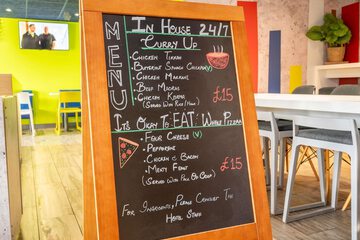 MENU
In House 24/7
Curry Up
• Chicken Tikka
• Butternut Squash Chickpea (V)
• Chicken Makhani
• Beef Madras
• Chicken Korma
(Served With Rice/Naan)
£15
Its Okay To EAT A Whole Pizza
• Four Cheese (V)
• Pepperoni
• Chicken & Bacon
• Meaty Feast
£15
For Ingredients, Please Consult The
Hotel Staff